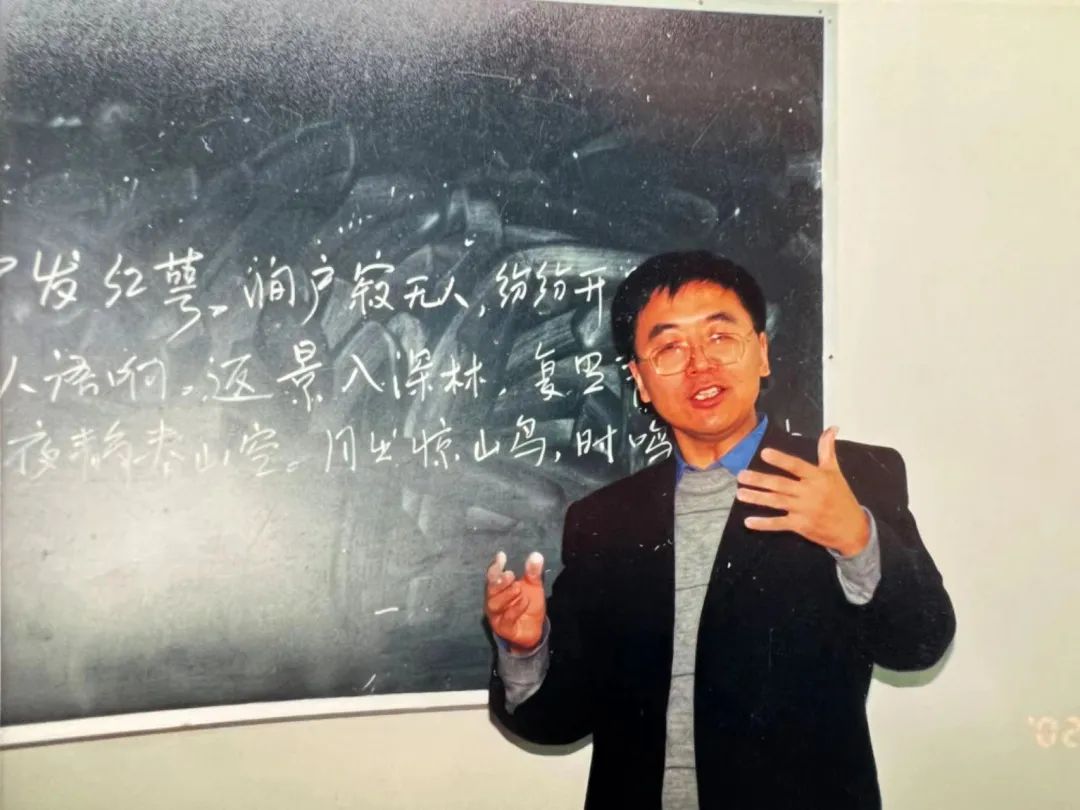 发红萼。涧户寂无人,纷纷开
人语响。返景入深林,复
夜静春山空。月出惊山鸟,时鸣